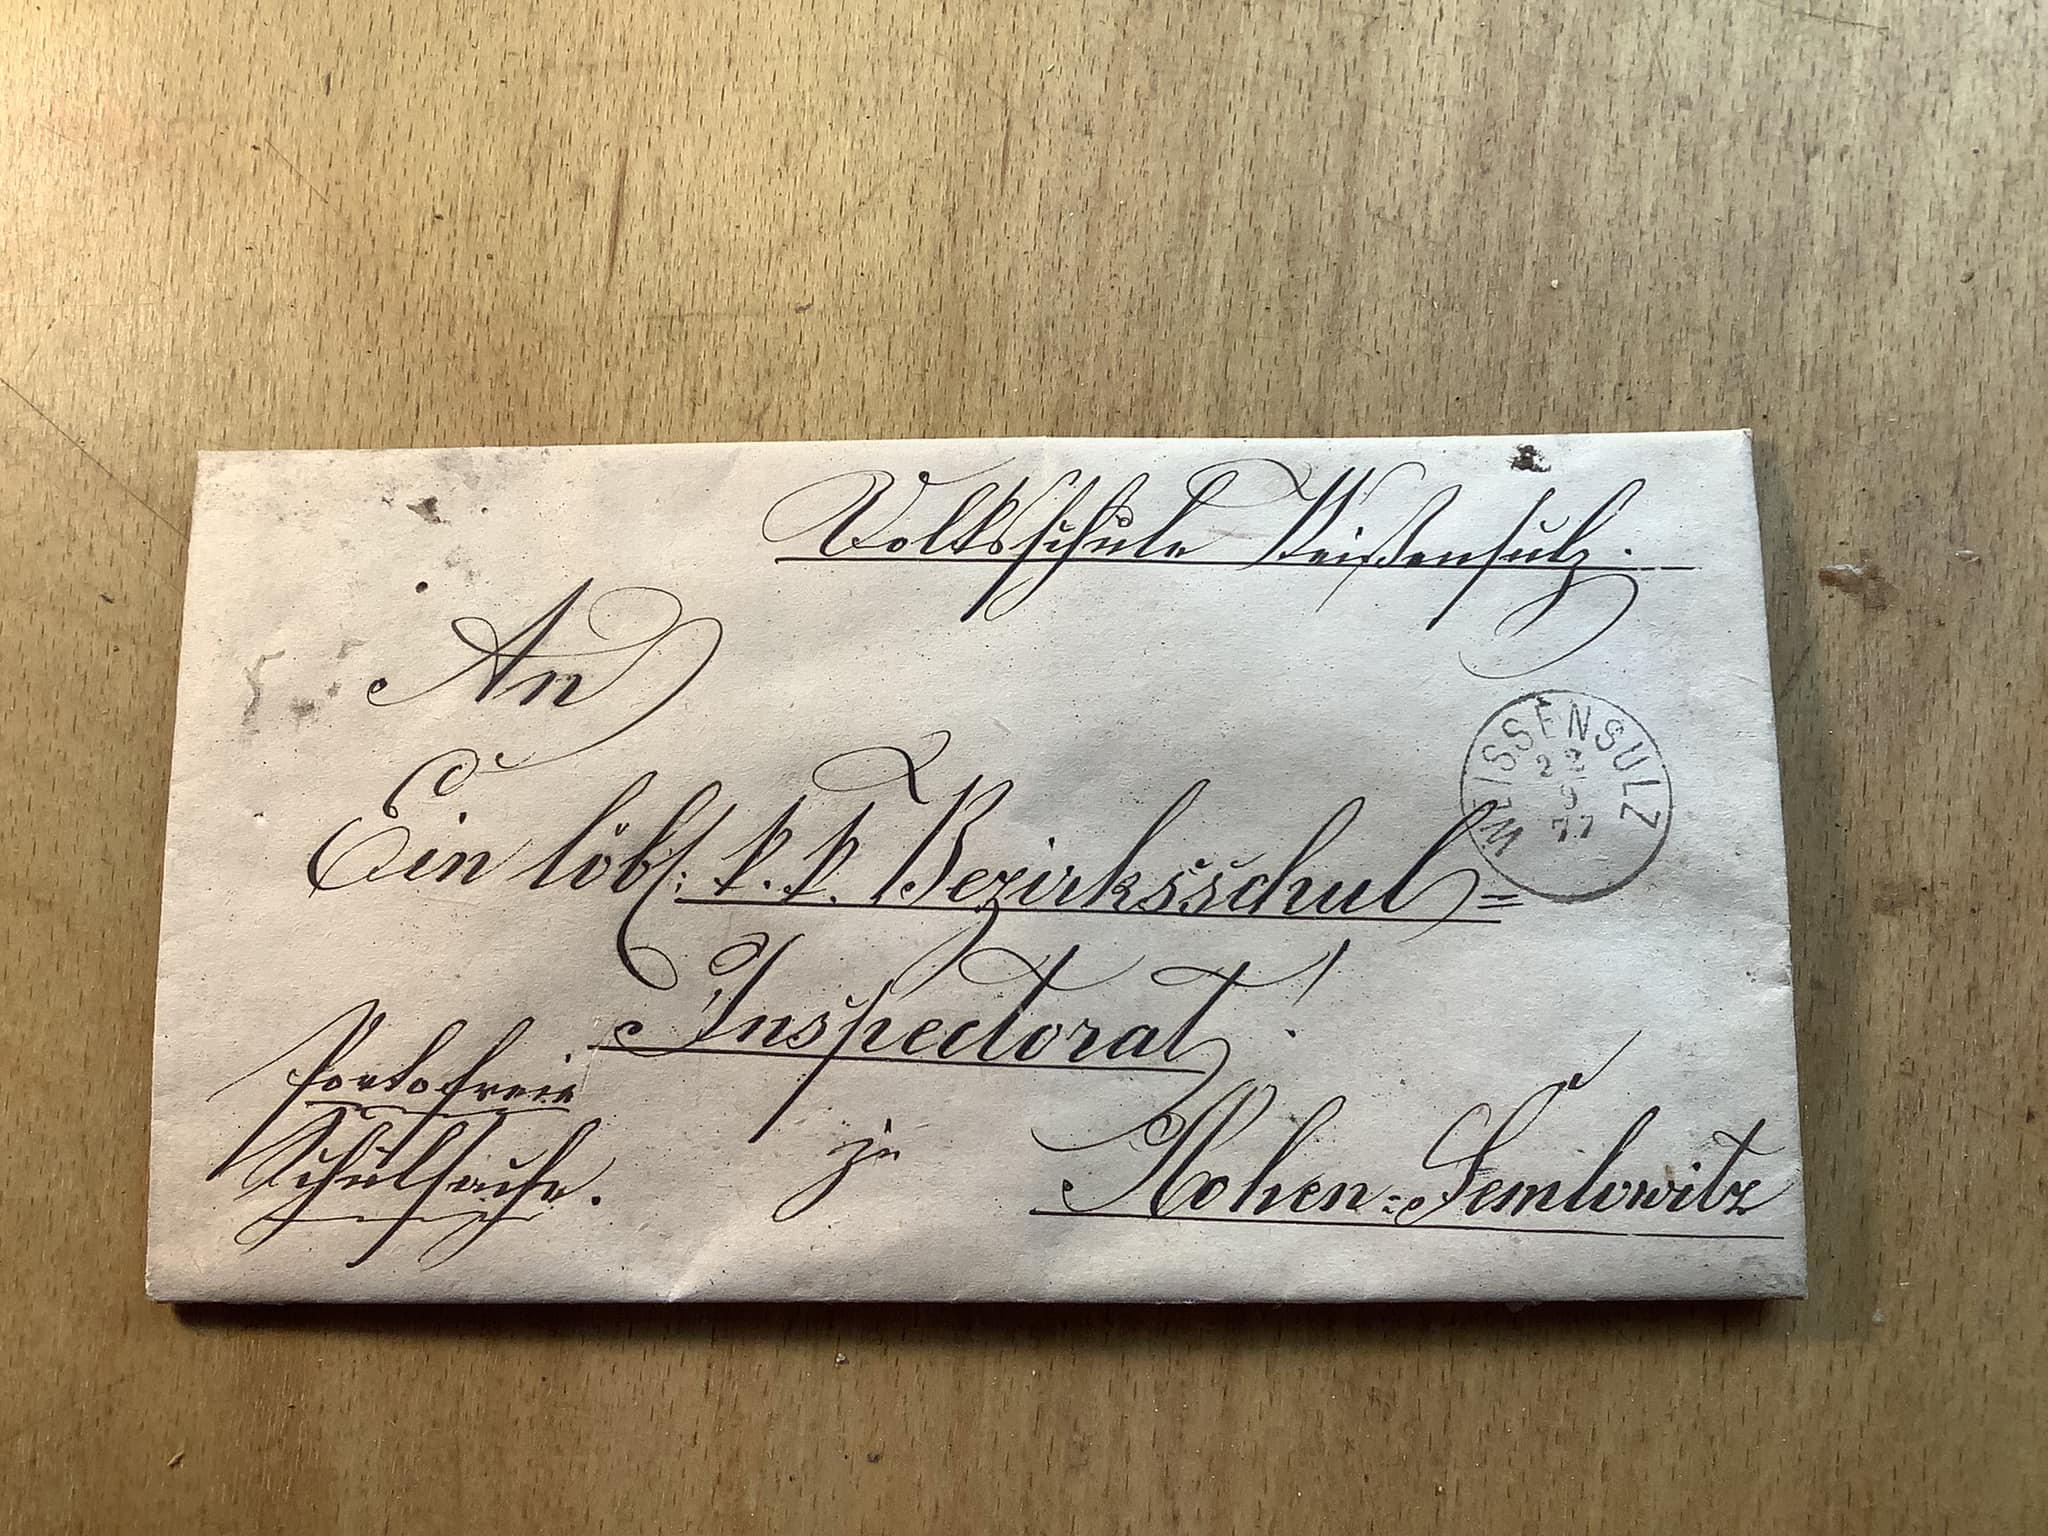 Volksschule Weißensulz.
An
WEISSENSULZ
22
9
77
Ein löbl: k. k. Bezirksschul=
Inspectorat!
Portofreie
Schulsache.
zu
Hohen=Semlowitz